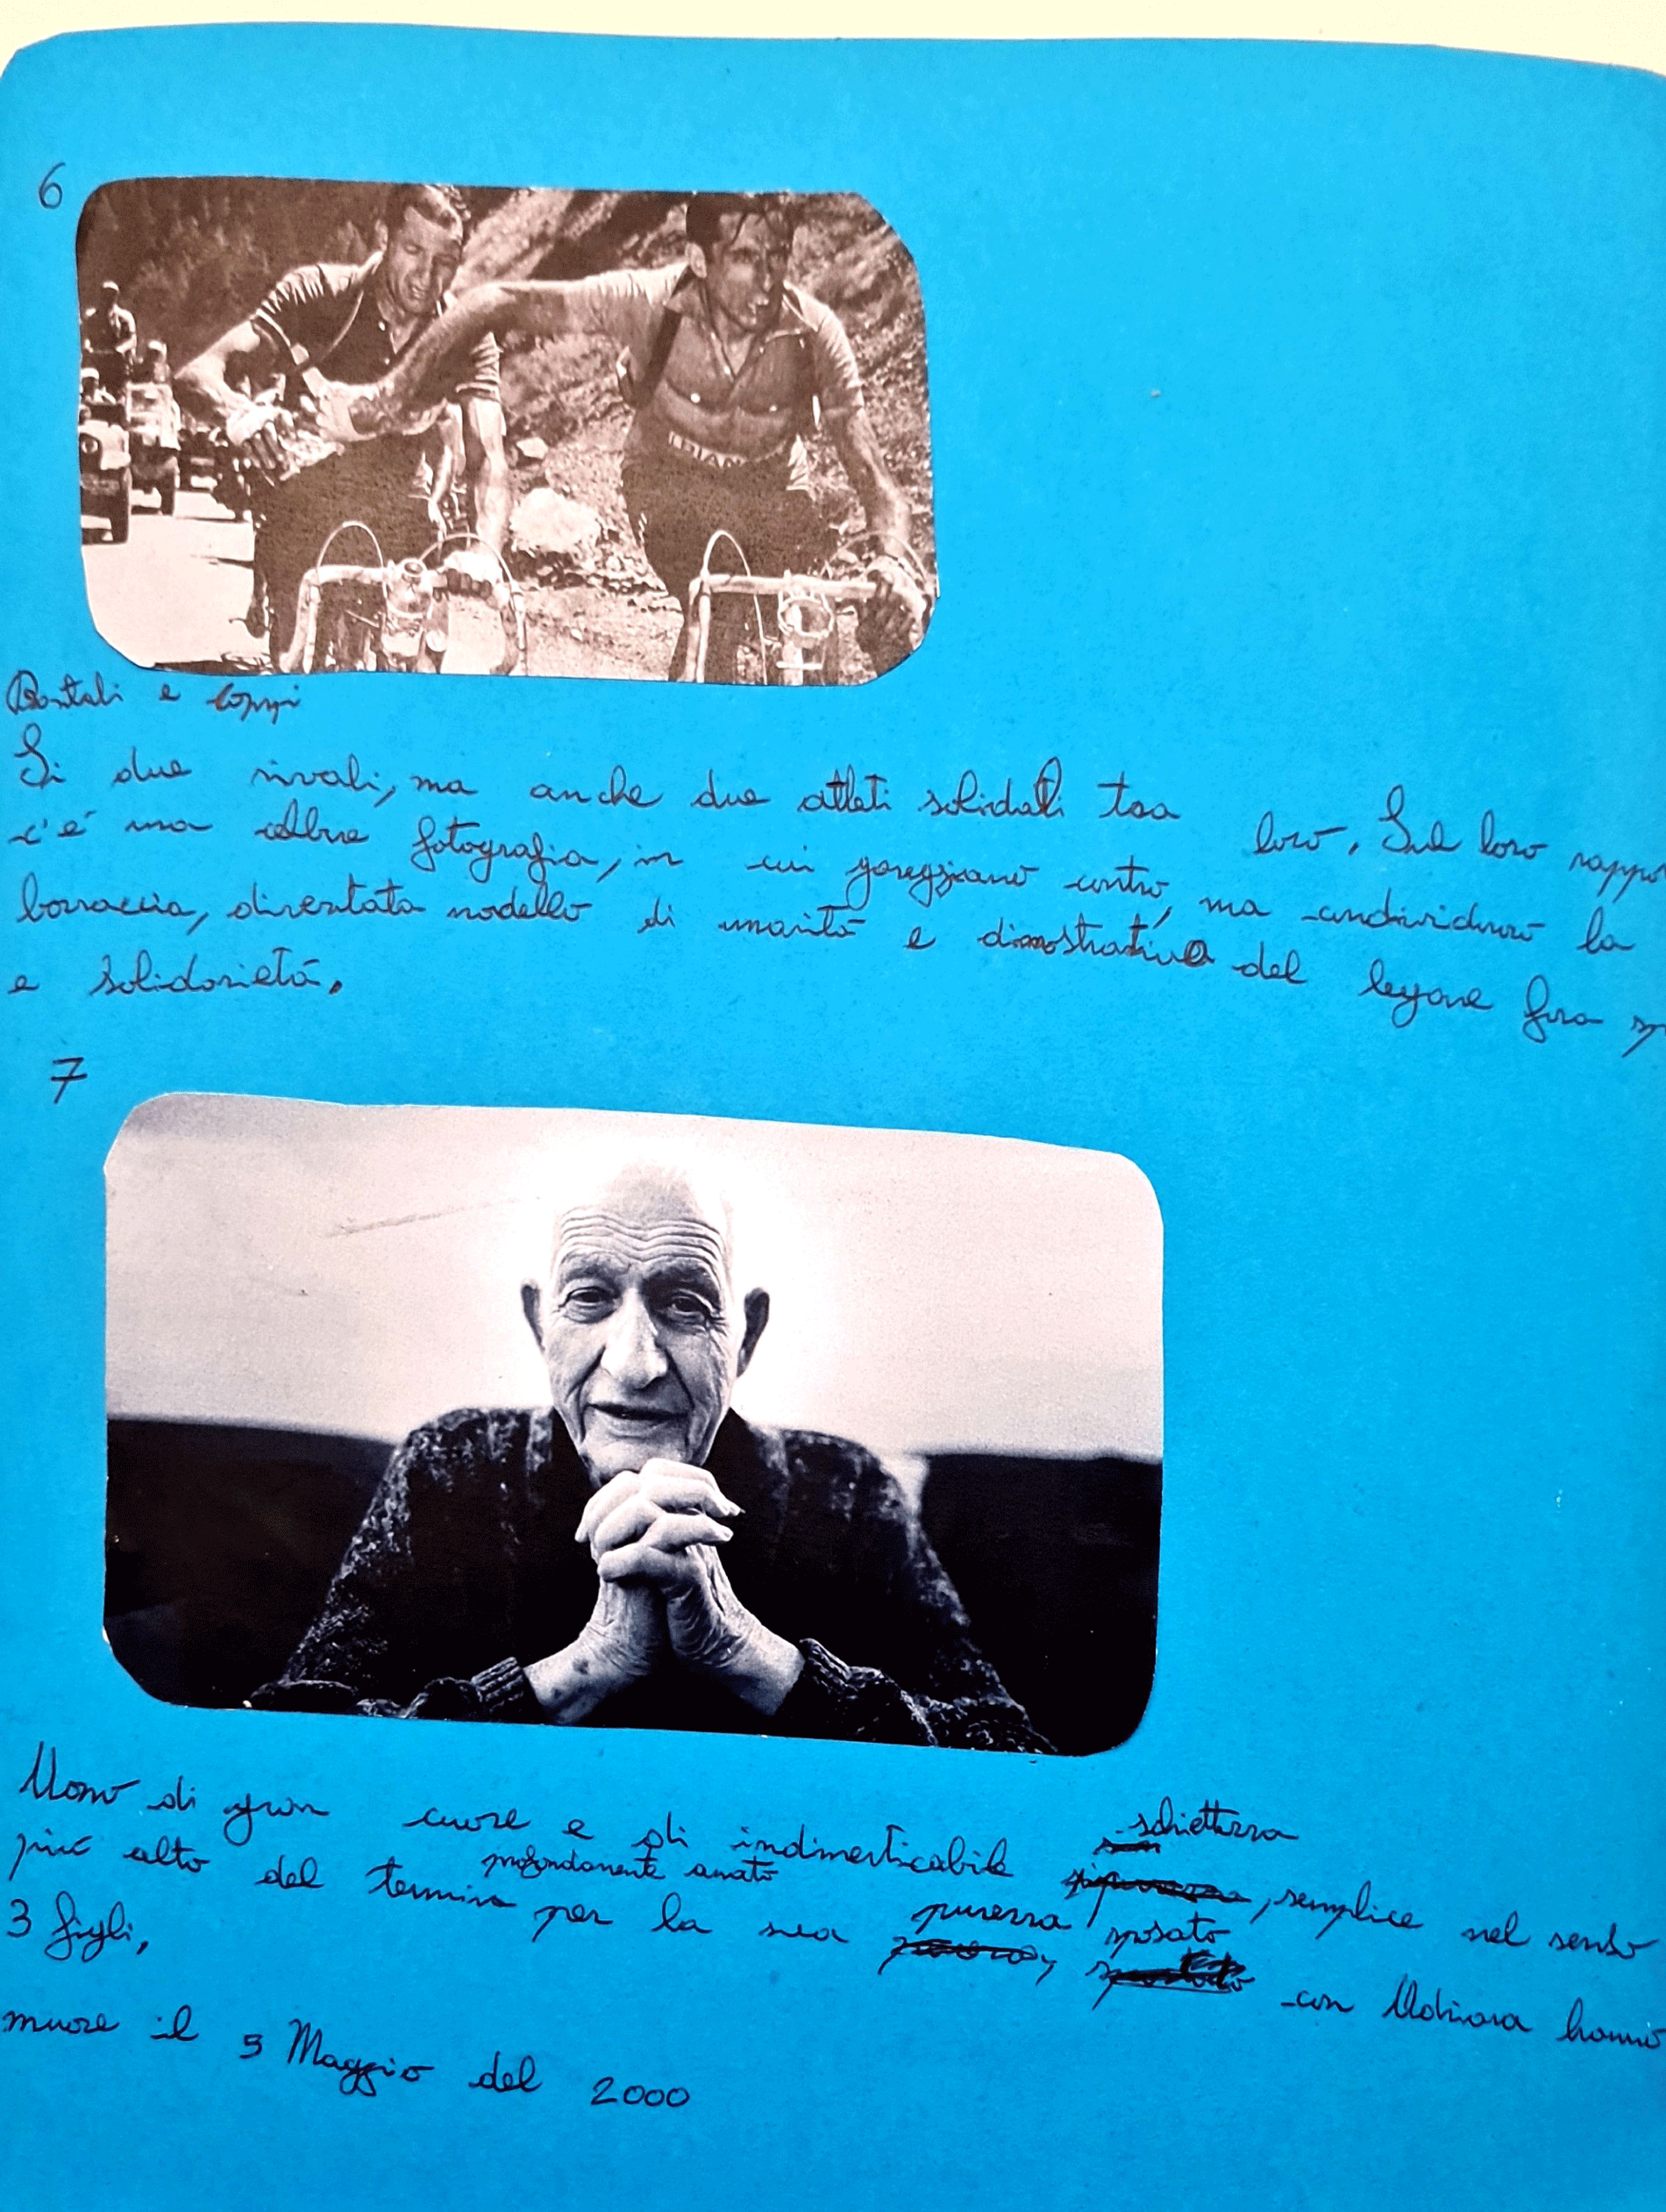 6
BIAN
Bartali e Coppi
Si due rivali, ma anche due atleti solidali tra loro. Sul loro rappo
c'è una celebre fotografia, in cui gareggiano contro, ma condividono la
borraccia, diventata modello di umanità e dimostrativa del legame fra sp
e solidarietà.
7
Uomo di gran cuore e di indimenticabile schiettezza, semplice nel senso
più alto del termine profondamente amato per la sua purezza sposato con Adriana hanno
3 figli,
muore il 5 Maggio del 2000